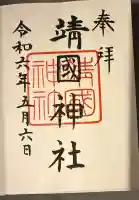 奉拝
靖國神社
令和六年五月六日
靖國神社